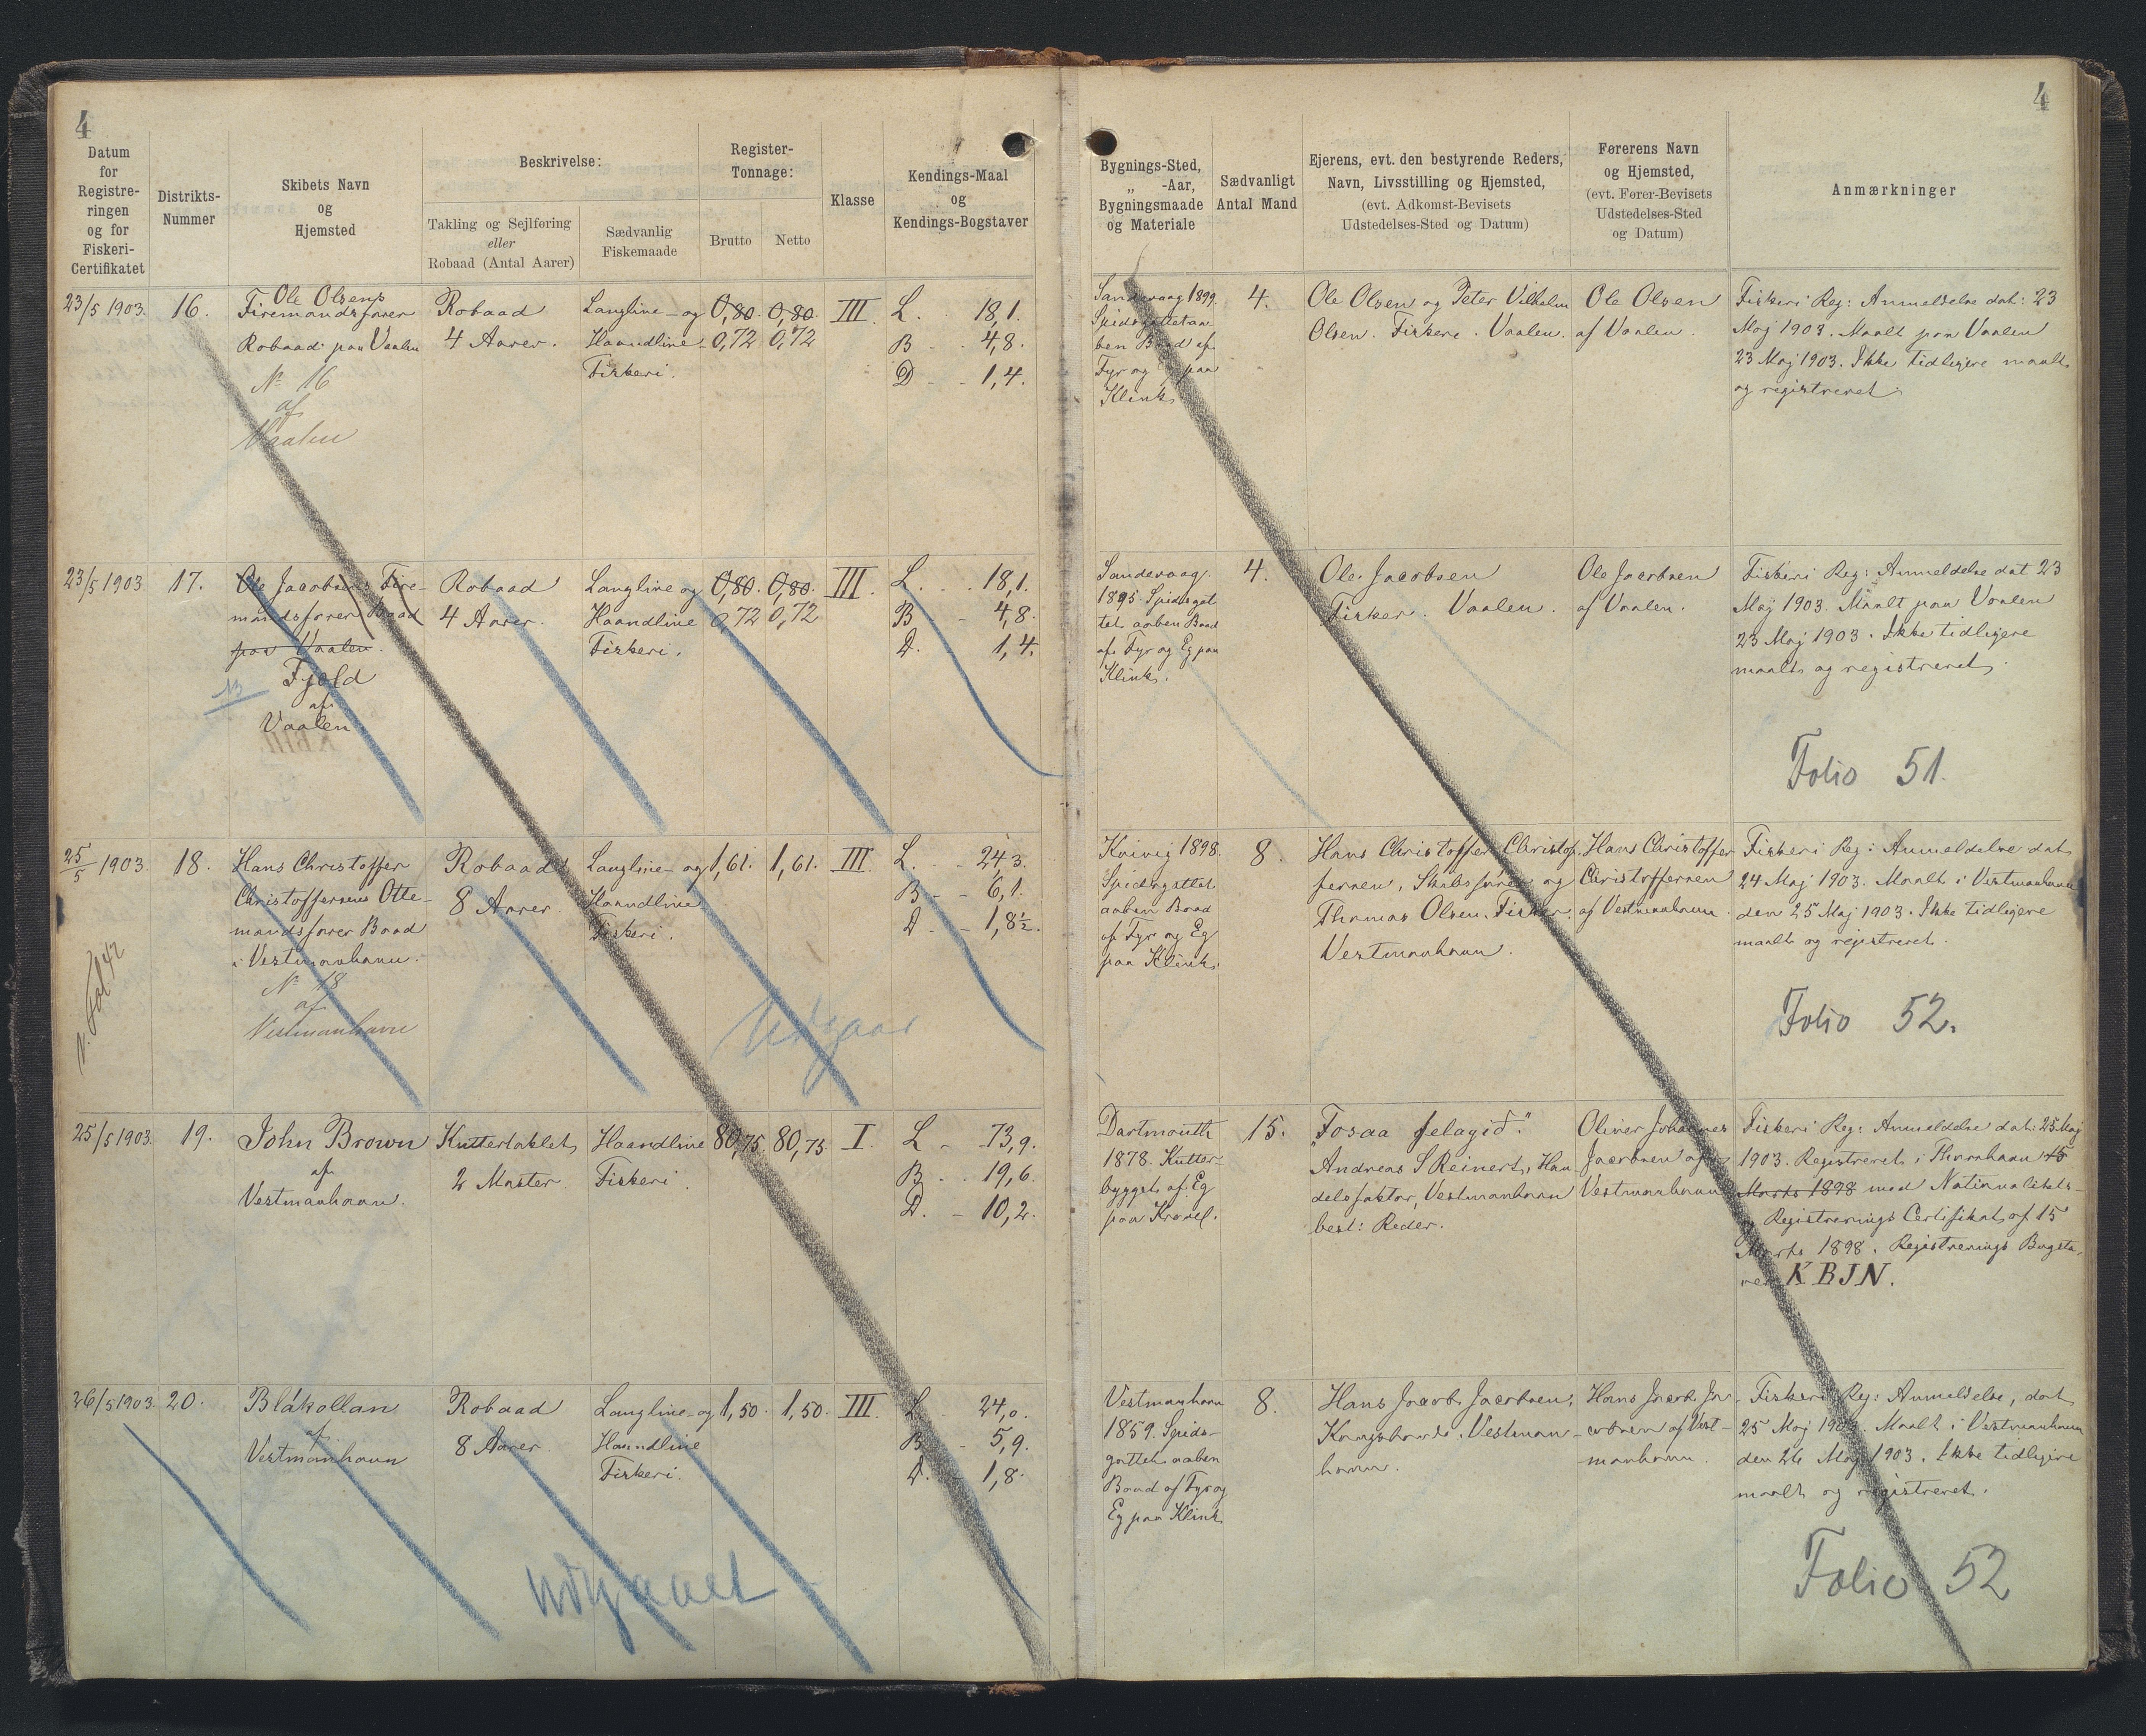 4
4
Datum
for
Registre-
ringen
og for
Fiskeri-
Certifikatet
Distrikts-
Nummer
Skibets Navn
og
Hjemsted
Beskrivelse:
Takling og Sejlføring
eller
Robaad (Antal Aarer)
Sædvanlig
Fiskemaade
Register-
Tonnage:
Brutto
Netto
Klasse
Kendings-Maal
og
Kendings-Bogstaver
Bygnings-Sted,
„ -Aar,
Bygningsmaade
og Materiale
Sædvanligt
Antal Mand
Ejerens, evt. den bestyrende Reders,
Navn, Livsstilling og Hjemsted,
(evt. Adkomst-Bevisets
Udstedelses-Sted og Datum)
Førerens Navn
og Hjemsted,
(evt. Fører-Bevisets
Udstedelses-Sted
og Datum)
Anmærkninger
23/5 1903.
16.
Ole Olsens
Firemandsfarer
Robaad paa Vaalen
№ 16
af
Vaalen
Robaad
4 Aarer.
Langline- og
Haandline
Fiskeri.
0,80. 0,80.
0,72 0,72
III.
L. 18,1.
B 4,8.
D 1,4.
Sandevaag 1899.
ben Baad af
Fyr og paa
Klink
4.
Ole Olsen og Peter Vilhelm
Olsen. Fiskere. Vaalen.
Ole Olsen
af Vaalen.
Fiskeri Reg: Anmeldelse dat: 23
Maj 1903. Maalt paa Vaalen
23 Maj 1903. Ikke tidligere maalt
og registreret.
23/5 1903
17.
Ole Jacobsens Fire-
mandsfarer Baad
paa Vaalen.
Fjeld
af
Vaalen
Robaad
4 Aarer.
Langline og
Haandline
Fiskeri.
0,80. 0,80.
0,72 0,72
III.
L. 18,1.
B 4,8.
D. 1,4.
Sandevaag
1895. Spidsgat
tet aaben Baad
af Fyr og Eg paa
Klink.
4.
Ole Jacobsen
Fisker. Vaalen.
Ole Jacobsen
af Vaalen.
Fiskeri Reg: Anmeldelse dat 23
Maj 1903. Maalt paa Vaalen
23 Maj 1903. Ikke tidligere
maalt og registreret.
Folio 51.
25/5 1903
18.
v. Fol 42
Hans Christoffer
Christoffersens Otte-
mandsfarer Baad
i Vestmanhavn.
№ 18
af
Vestmanhavn
Robaad
8 Aarer
Langline- og
Haandline
Fiskeri.
1,61. 1,61.
III.
L. 24,3.
B 6,1.
D 1,8½.
Udgaar
Kvivig 1898.
Spidsgattet
aaben Baad
af Fyr og Eg
paa Klink.
8.
Hans Christoffer Christof-
fersen, Skibsfører og
Thomas Olsen, Fisker,
Vestmanhavn.
Hans Christoffer
Christoffersen
af Vestmanhavn.
Fiskeri Reg: Anmeldelse dat
24 Maj 1903. Maalt i Vestmanhavn
den 25 Maj 1903. Ikke tidligere
maalt og registreret.
Folio 52.
25/5 1903.
19.
John Brown
af
Vestmanhavn.
Kuttertaklet
2 Master.
Haandline
Fiskeri.
80,75 80,75
I.
L 73,9.
B. 19,6.
D. 10,2.
Dartmouth
1878. Kutter-
bygget af Eg
paa Kravel.
15.
„Fosaa felagið“.
Andreas S Reinert, Han-
delsfaktor, Vestmanhavn
best: Reder.
Oliver Johannes
Jacobsen af
Vestmanhavn
Fiskeri Reg: Anmeldelse dat: 25 Maj
1903. Registreret i Thorshavn 15
Marts 1898 med Nationalitets-
og Registrerings Certifikat af 15
Marts 1898. Registrerings Bogsta-
ver KBJN.
26/5 1903.
20.
Blákollan
af
Vestmanhavn
Robaad
8 Aarer
Langline- og
Haandline
Fiskeri.
1,50. 1,50.
III.
L 24,0.
B. 5,9.
D. 1,8.
udgaaet
Vestmanhavn
1859. Spids-
gattet aaben
Baad af Fyr og
Eg paa Klink
8.
Hans Jacob Jacobsen,
Kongsbonde. Vestman-
havn.
Hans Jacob Ja-
cobsen af Vest-
manhavn.
Fiskeri Reg: Anmeldelse, dat
25 Maj 1903. Maalt i Vestmanhavn
den 26 Maj 1903. Ikke tidligere
maalt og registreret.
Folio 52